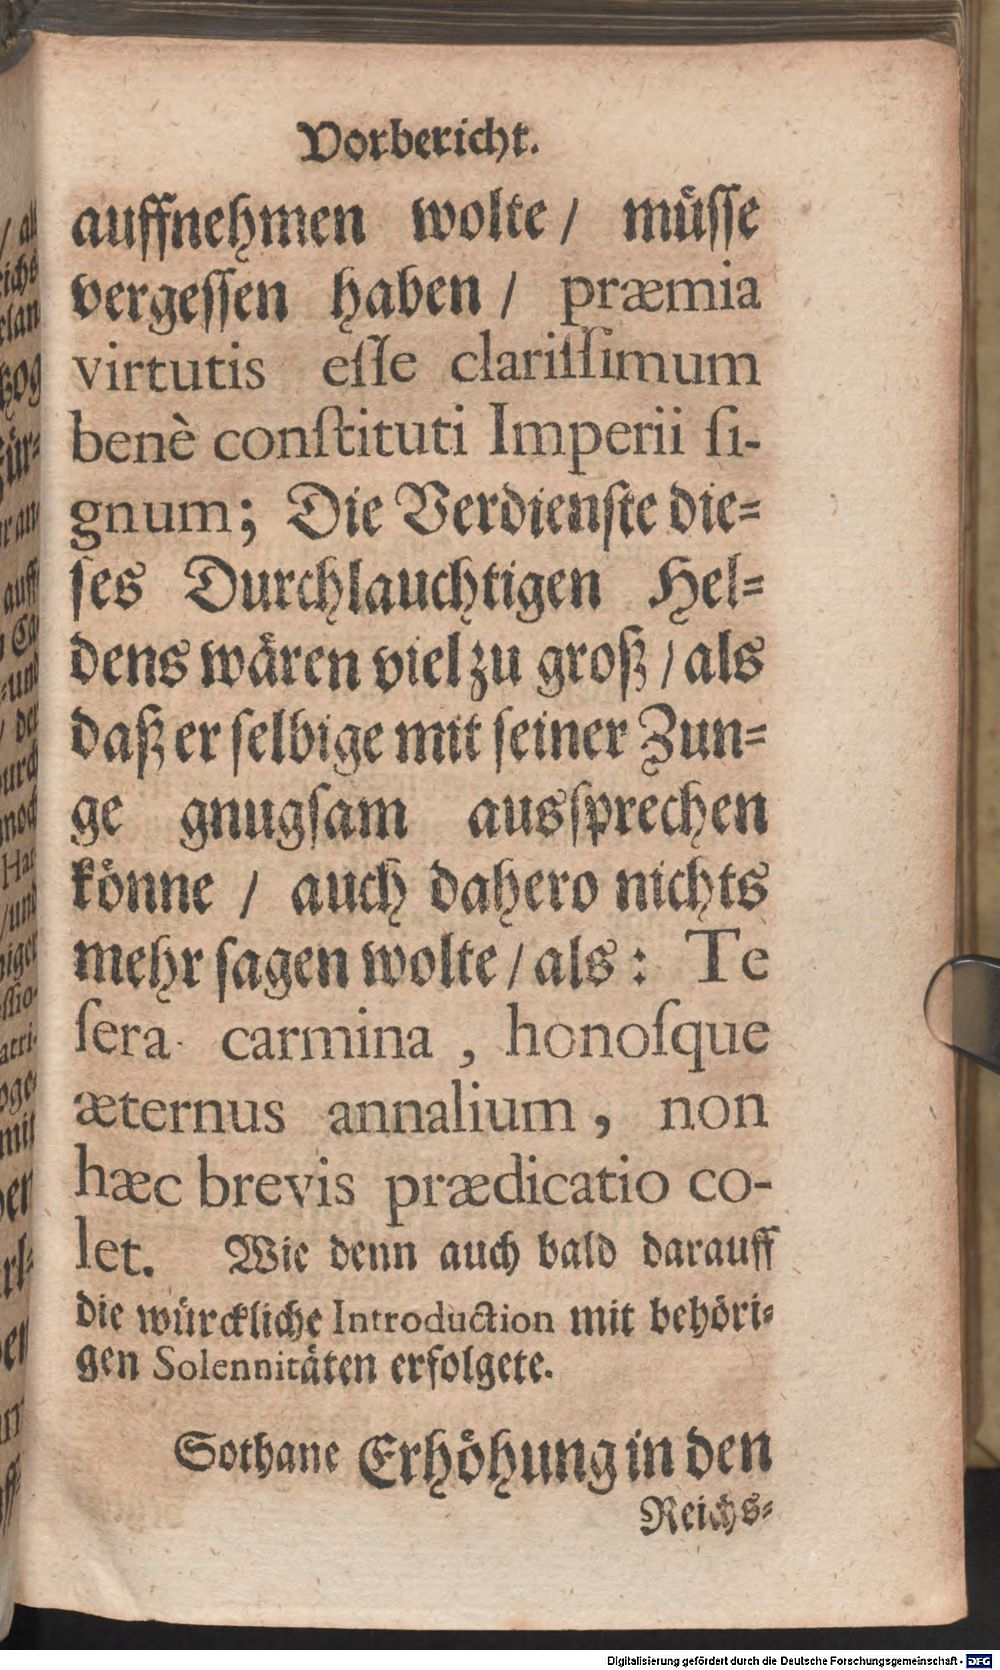 Vorbericht.
auffnehmen wolte / müſſe
vergeſſen haben / præmia
virtutis eſſe clariſſimum
benè conſtituti Imperii ſi-
gnum; Die Verdienſte die=
ſes Durchlauchtigen Hel=
dens wären viel zu groß / als
daß er ſelbige mit ſeiner Zun=
ge gnugſam ausſprechen
könne / auch dahero nichts
mehr ſagen wolte / als: Te
ſera carmina, honoſque
æternus annalium, non
hæc brevis prædicatio co-
let. Wie denn auch bald darauff
die würckliche Introduction mit behöri=
gen Solennitäten erfolgete.
Sothane Erhöhung in den
Reichs=
Digitalisierung gefördert durch die Deutsche Forschungsgemeinschaft - DFG